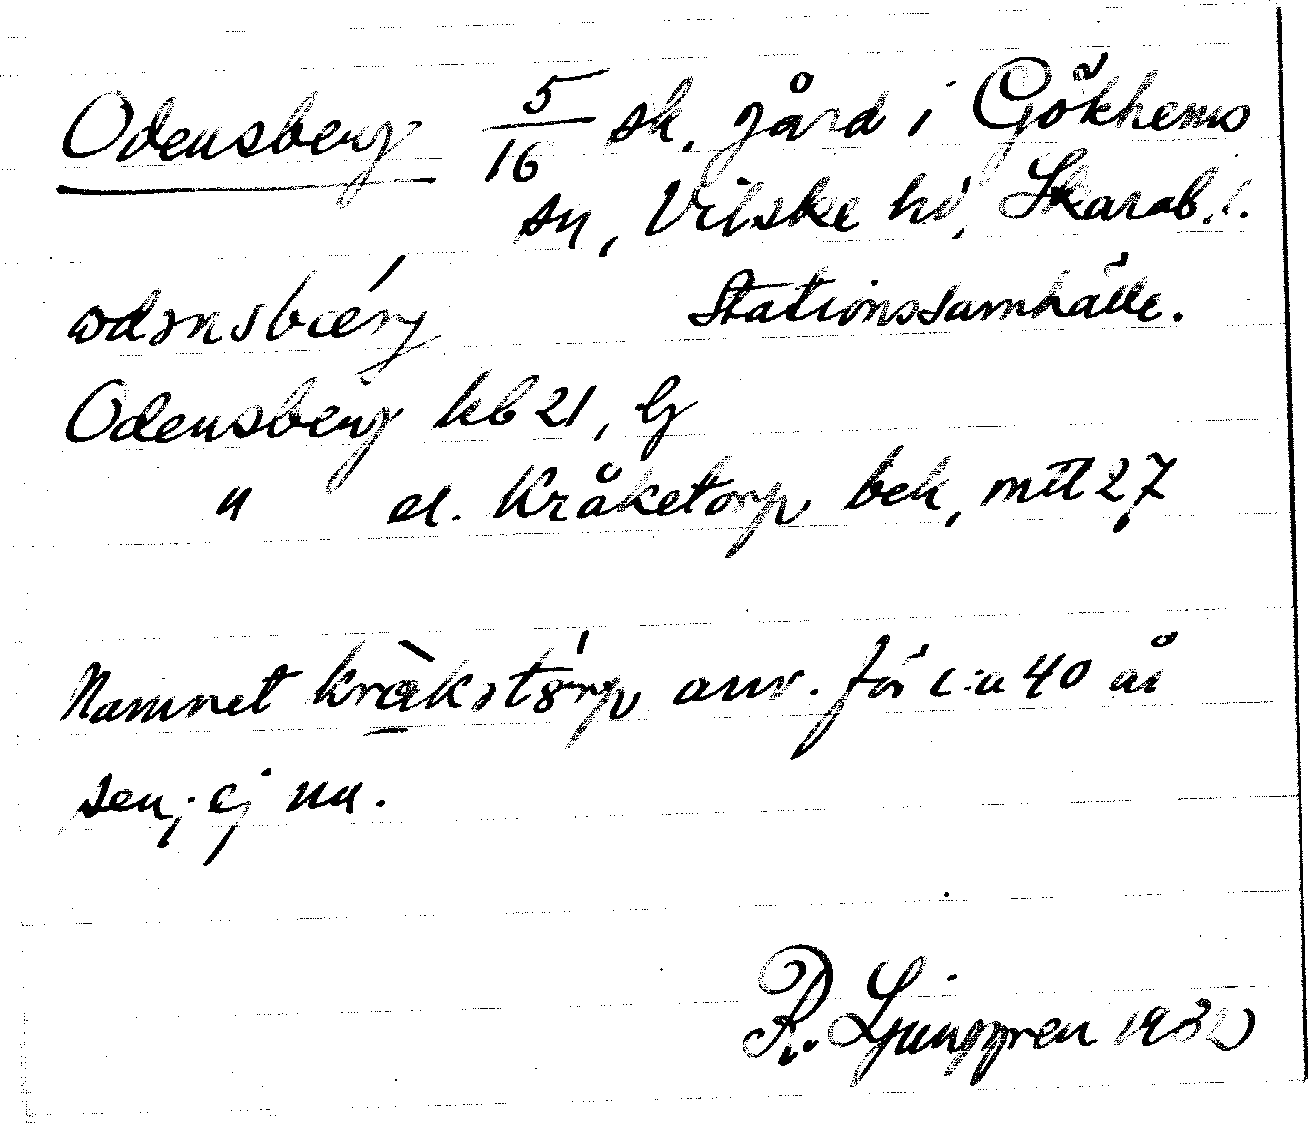 Odensberg 5/16 sk. gård i Gökhems
sn, Vilske hd, Skarab. l.
odənsbærj Stationssamhälle.
Odensberg kb 21, Gj
" el. Kråketorp bek, mtl 2,7
Namnet kråkətorp anv. för c:a 40 år
sen; ej nu.
R. Ljunggren 1932